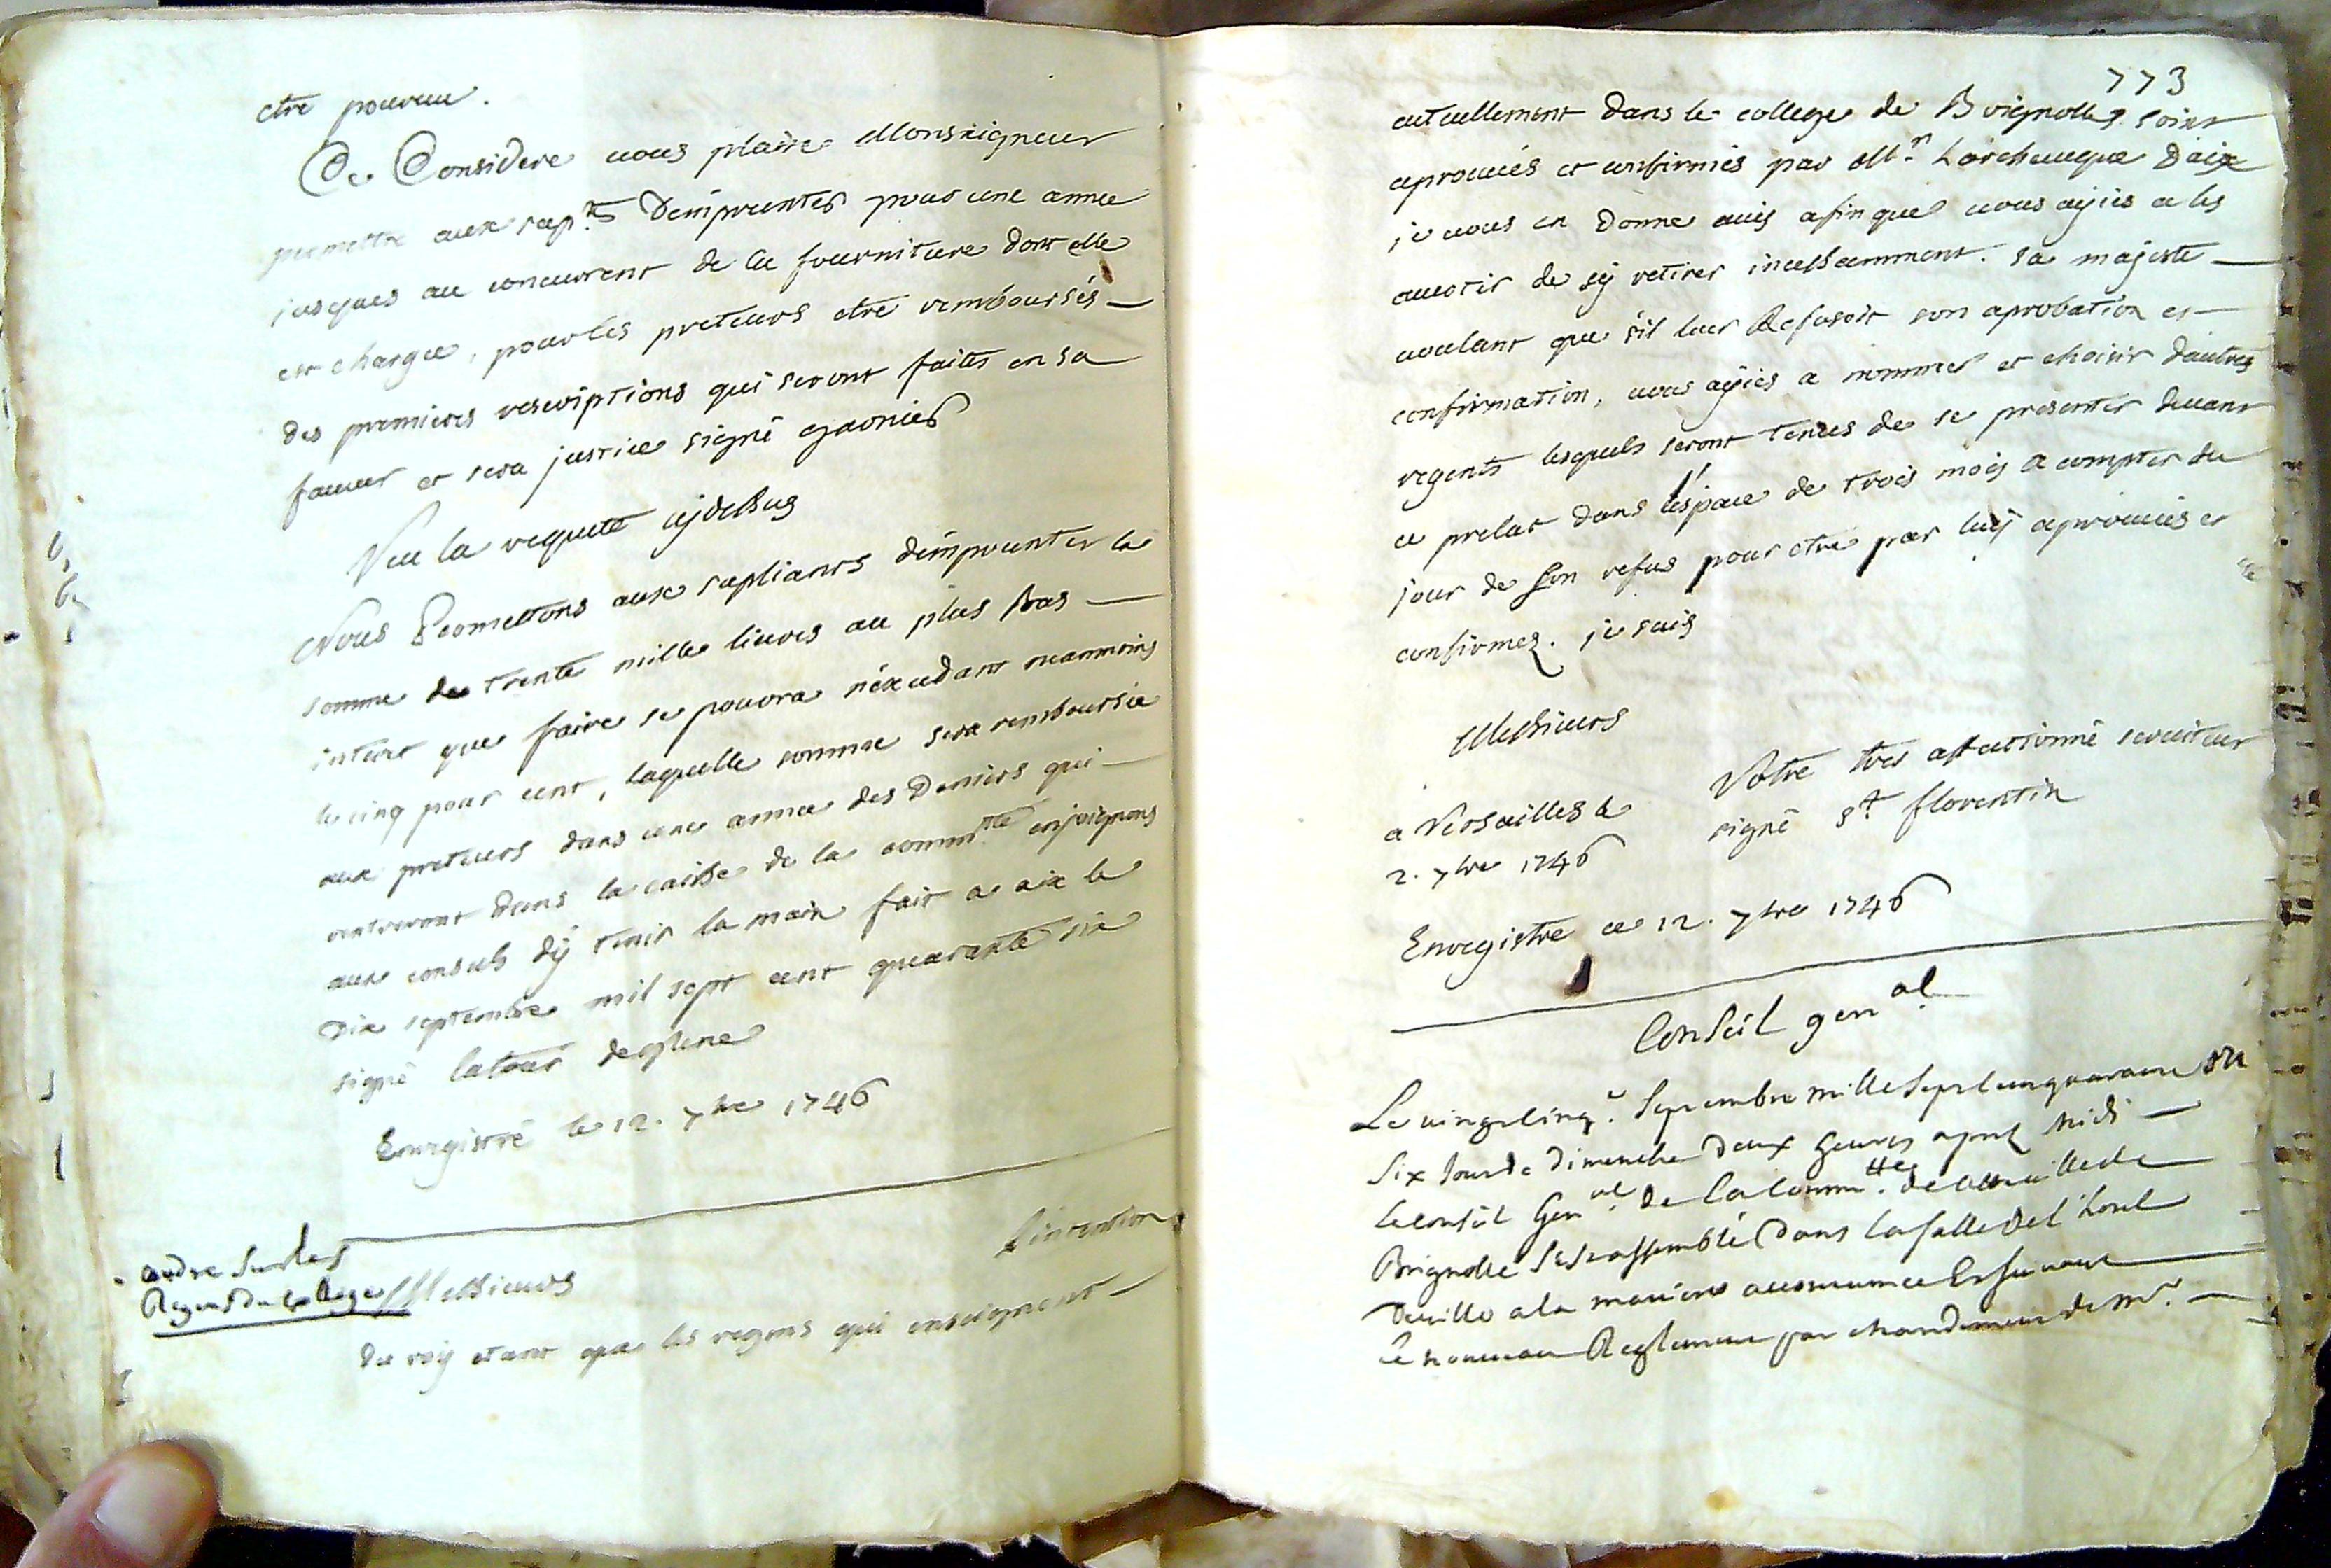 etre pourveu.
Ce Considere vous plaise Monseigneur
permettre aux sup.ts D'emprunter pour une annee
jusques au concurrent de la fourniture dont elle
est chargee, pour les preteurs etre remboursés
des premieres rescriptions qui seront faites en sa
faveur et sera justice signé garnier
Veu la requete cy dessus
Nous Permettons aux supliants d'emprunter la
somme de trente mille livres au plus bas
interet que faire se pourra n'excedant neanmoins
le cinq pour cent, laquelle somme sera remboursée
aux preteurs dans une annee des Deniers qui
rentreront dans la caisse de la comm.té enjoignons
aux consuls d'y tenir la main fait a aix le
Dix septembre mil sept cent quarante six
signé latour deglene
Enregistré le 12. 7bre 1746
ordre sur les
Regens du College
Messieurs
L'intention
du roy etant que les regens qui enseignent
773
actuellement dans le college de Brignolle, soint
aprouvés et confirmés par M.r L'archeveque D'aix
je vous en Donne avis afin que vous ayiés a les
avertir de s'y retirer incessamment. sa majesté
voulant que s'il leur Refusoit son aprobation et
confirmation, vous ayiés a nommer et choisir d'autres
regents lesquels seront tenus de se presenter devant
ce prelat dans l'espace de trois mois a compter du
jour de son refus pour etre par luy aprouvés et
confirmez. je suis
Messieurs
Votre tres affectionné serviteur
a Versailles le
signé s.t florentin
2. 7bre 1746
Enregistre ce 12. 7bre 1746
Conseil gen.al
Le vingt cinq.e Septembre mille Sept cens quarante
Six Jour de Dimenche Deux heures apres Midi
le conseil Gen.al de la Comm.tté de la ville de
Brignolle S'est assemblé Dans la salle de l'hotel
De ville a la maniere accoutumée Et suivant
le nouveau Reglement par mandement de m.r